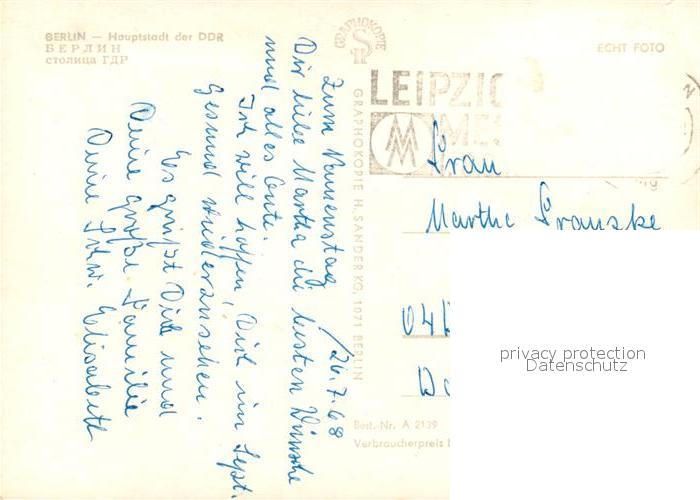 BERLIN — Hauptstadt der DDR
БЕРЛИН
столица ГДР
Zum Namenstag / 26.7.68
Dir liebe Martha die besten Wünsche
und alles Gute.
Ich will hoffen, Dich im Sept.
Gesund wiederzusehen.
Es grüßt Dich und
Deine große Familie
Deine Schw. Elisabeth
GRAPHOKOPIE
GRAPHOKOPIE H. SANDER KG, 1071 BERLIN
ECHT FOTO
LEIPZIG
MES
MM
Frau
Martha Franske
04
privacy protection
Datenschutz
Best.-Nr. A 2139
Verbraucherpreis